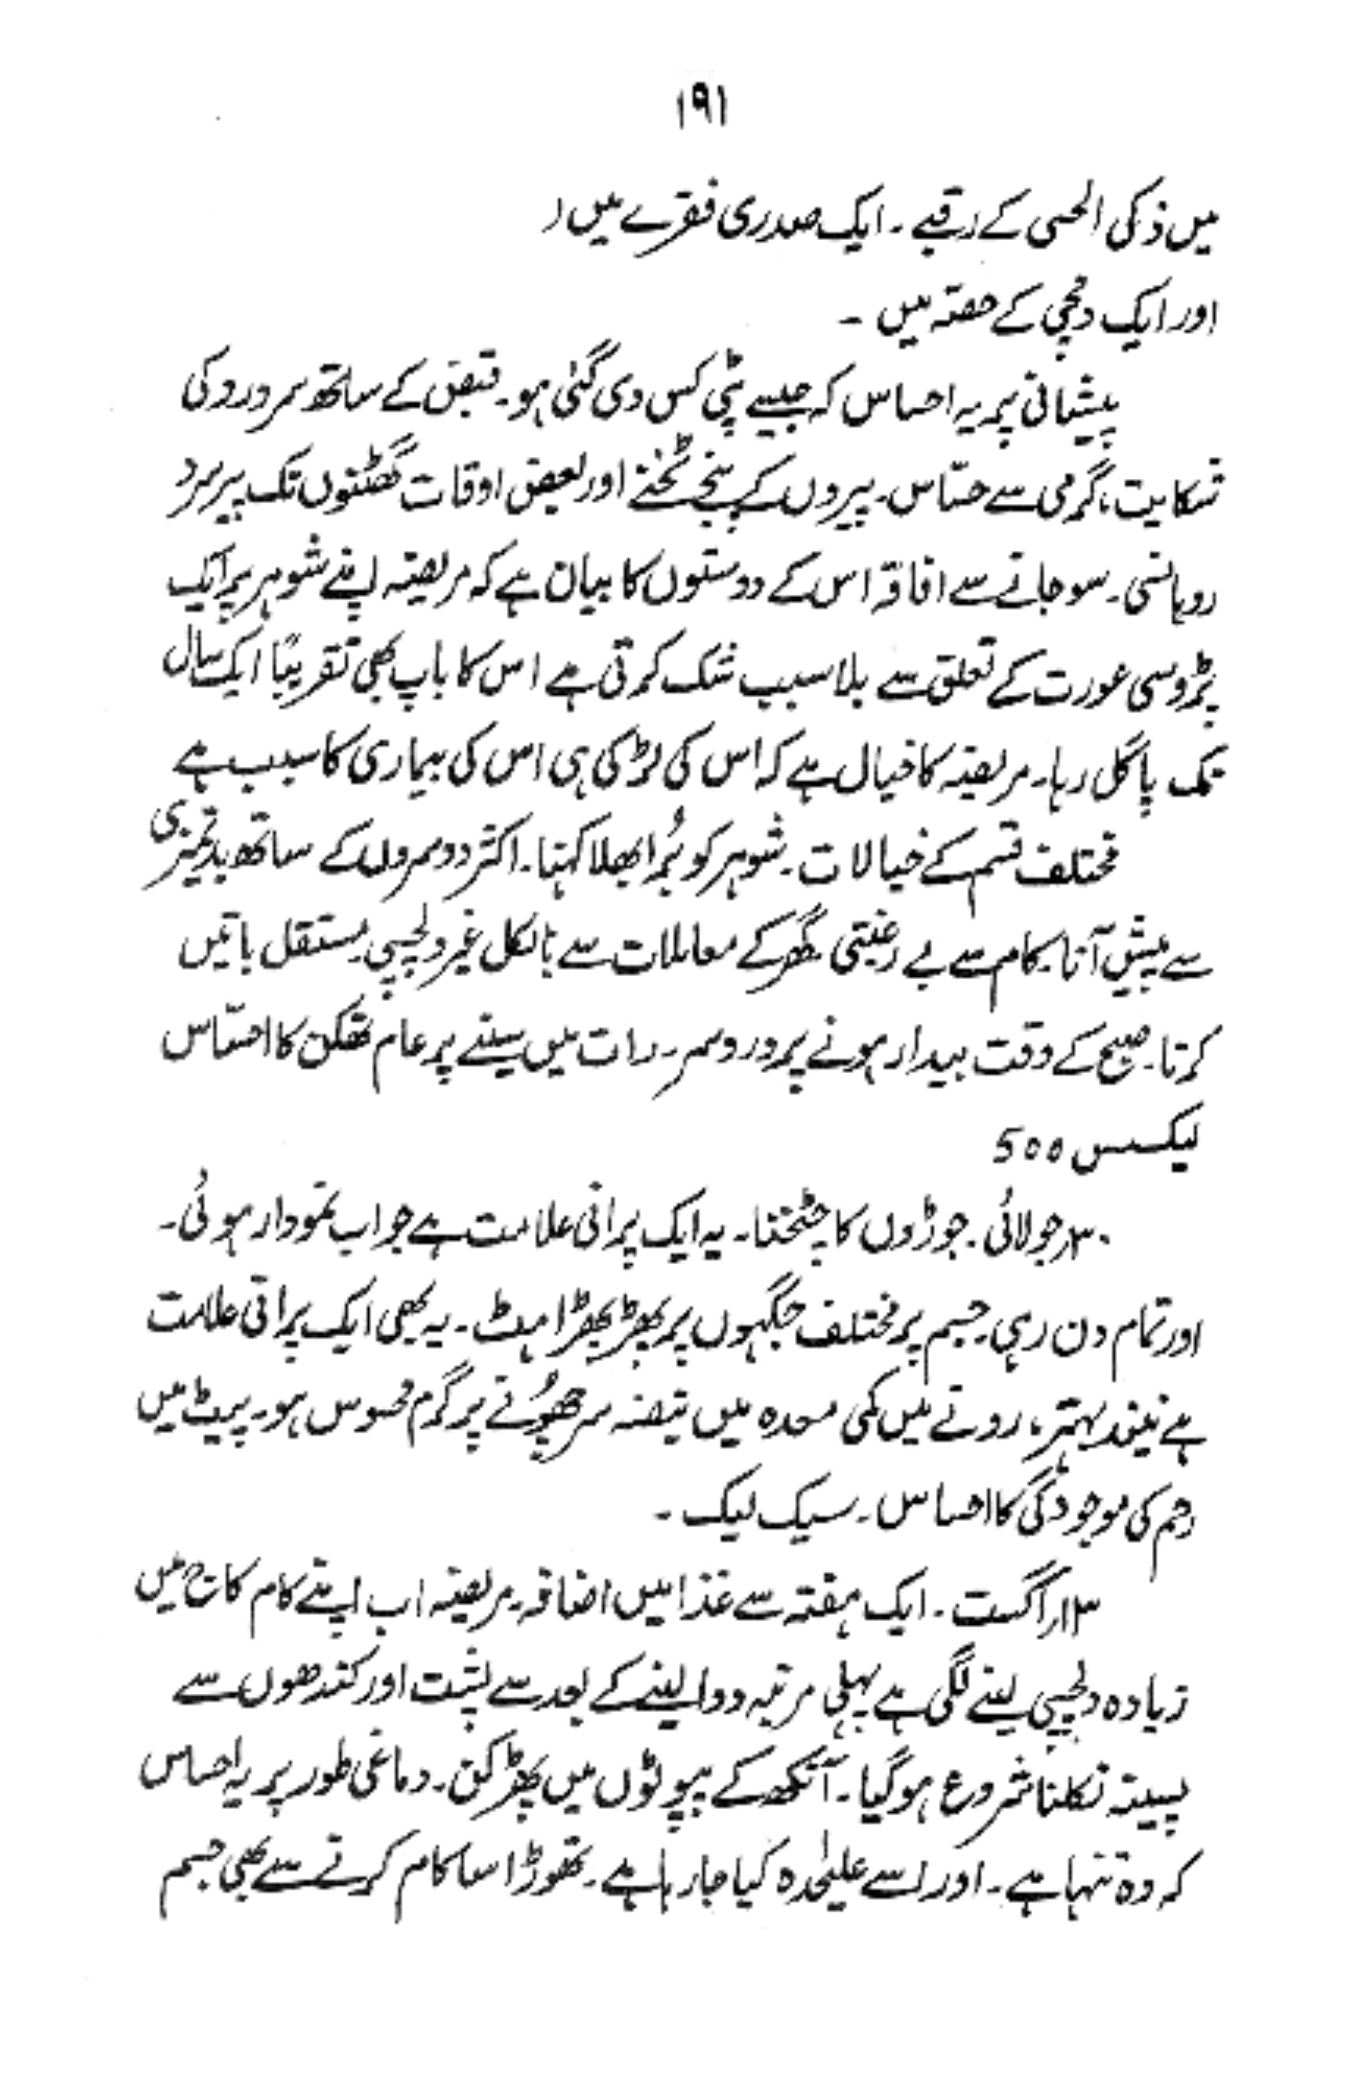 ۱۹۱
میں ذکی الحسی کے رقبے ۔ ایک صدری فقرے میں (
اور ایک دمچی کے حصتہ میں ۔
پیشانی پر یہ احساس کہ جیسے پٹی کس دی گئی ہو۔ قبض کے ساتھ سر درد کی
شکایت، گرمی سے حسّاس۔ پیروں کے پنجے ٹخنے اور بعض اوقات گھٹنوں تک پیر سرد
روہانسی۔ سو جانے سے افاقہ اس کے دوستوں کا بیان ہے کہ مریضہ اپنے شوہر پر ایک
پڑوسی عورت کے تعلق سے بلا سبب شک کرتی ہے اس کا باپ بھی تقریبًا ایک سال
تک پاگل رہا۔ مریضہ کا خیال ہے کہ اس کی لڑکی ہی اس کی بیماری کا سبب ہے
مختلف قسم کے خیالات ۔ شوہر کو بُرا بھلا کہنا۔ اکثر دوسروں کے ساتھ بدتمیزی
سے پیش آنا۔ کام سے بے رغبتی گھر کے معاملات سے بالکل غیر دلچسپی۔ مستقل باتیں
کرنا۔ صبح کے وقت بیدار ہونے پر درد سر۔ رات میں سینے پر عام تھکن کا احسّاس
لیکسس 500
۳۰ر جولائی ۔ جوڑوں کا چٹخنا ۔ یہ ایک پرانی علامت ہے جو اب نمودار ہوئی ۔
اور تمام دن رہی۔ جسم پر مختلف جگہوں پر پھڑپھڑاہٹ ۔ یہ بھی ایک پرانی علامت
ہے نیند بہتر، رونے میں کمی معدہ میں قبضہ سر چھونے پر گرم محسوس ہو۔ پیٹ میں
رحم کی موجودگی کا احساس ۔ سیک لیک ۔
۱۳ر اگست ۔ ایک ہفتہ سے غذا میں اضافہ۔ مریضہ اب اپنے کام کاج میں
زیادہ دلچسپی لینے لگی ہے پہلی مرتبہ دوا لینے کے بعد سے پشت اور کندھوں سے
پسینہ نکلنا شروع ہو گیا ۔ آنکھ کے پپوٹوں میں پھڑکن ۔ دماغی طور پر یہ احساس
کہ وہ تنہا ہے ۔ اور اسے علیٰحدہ کیا جا رہا ہے ۔ تھوڑا سا کام کرنے سے بھی جسم